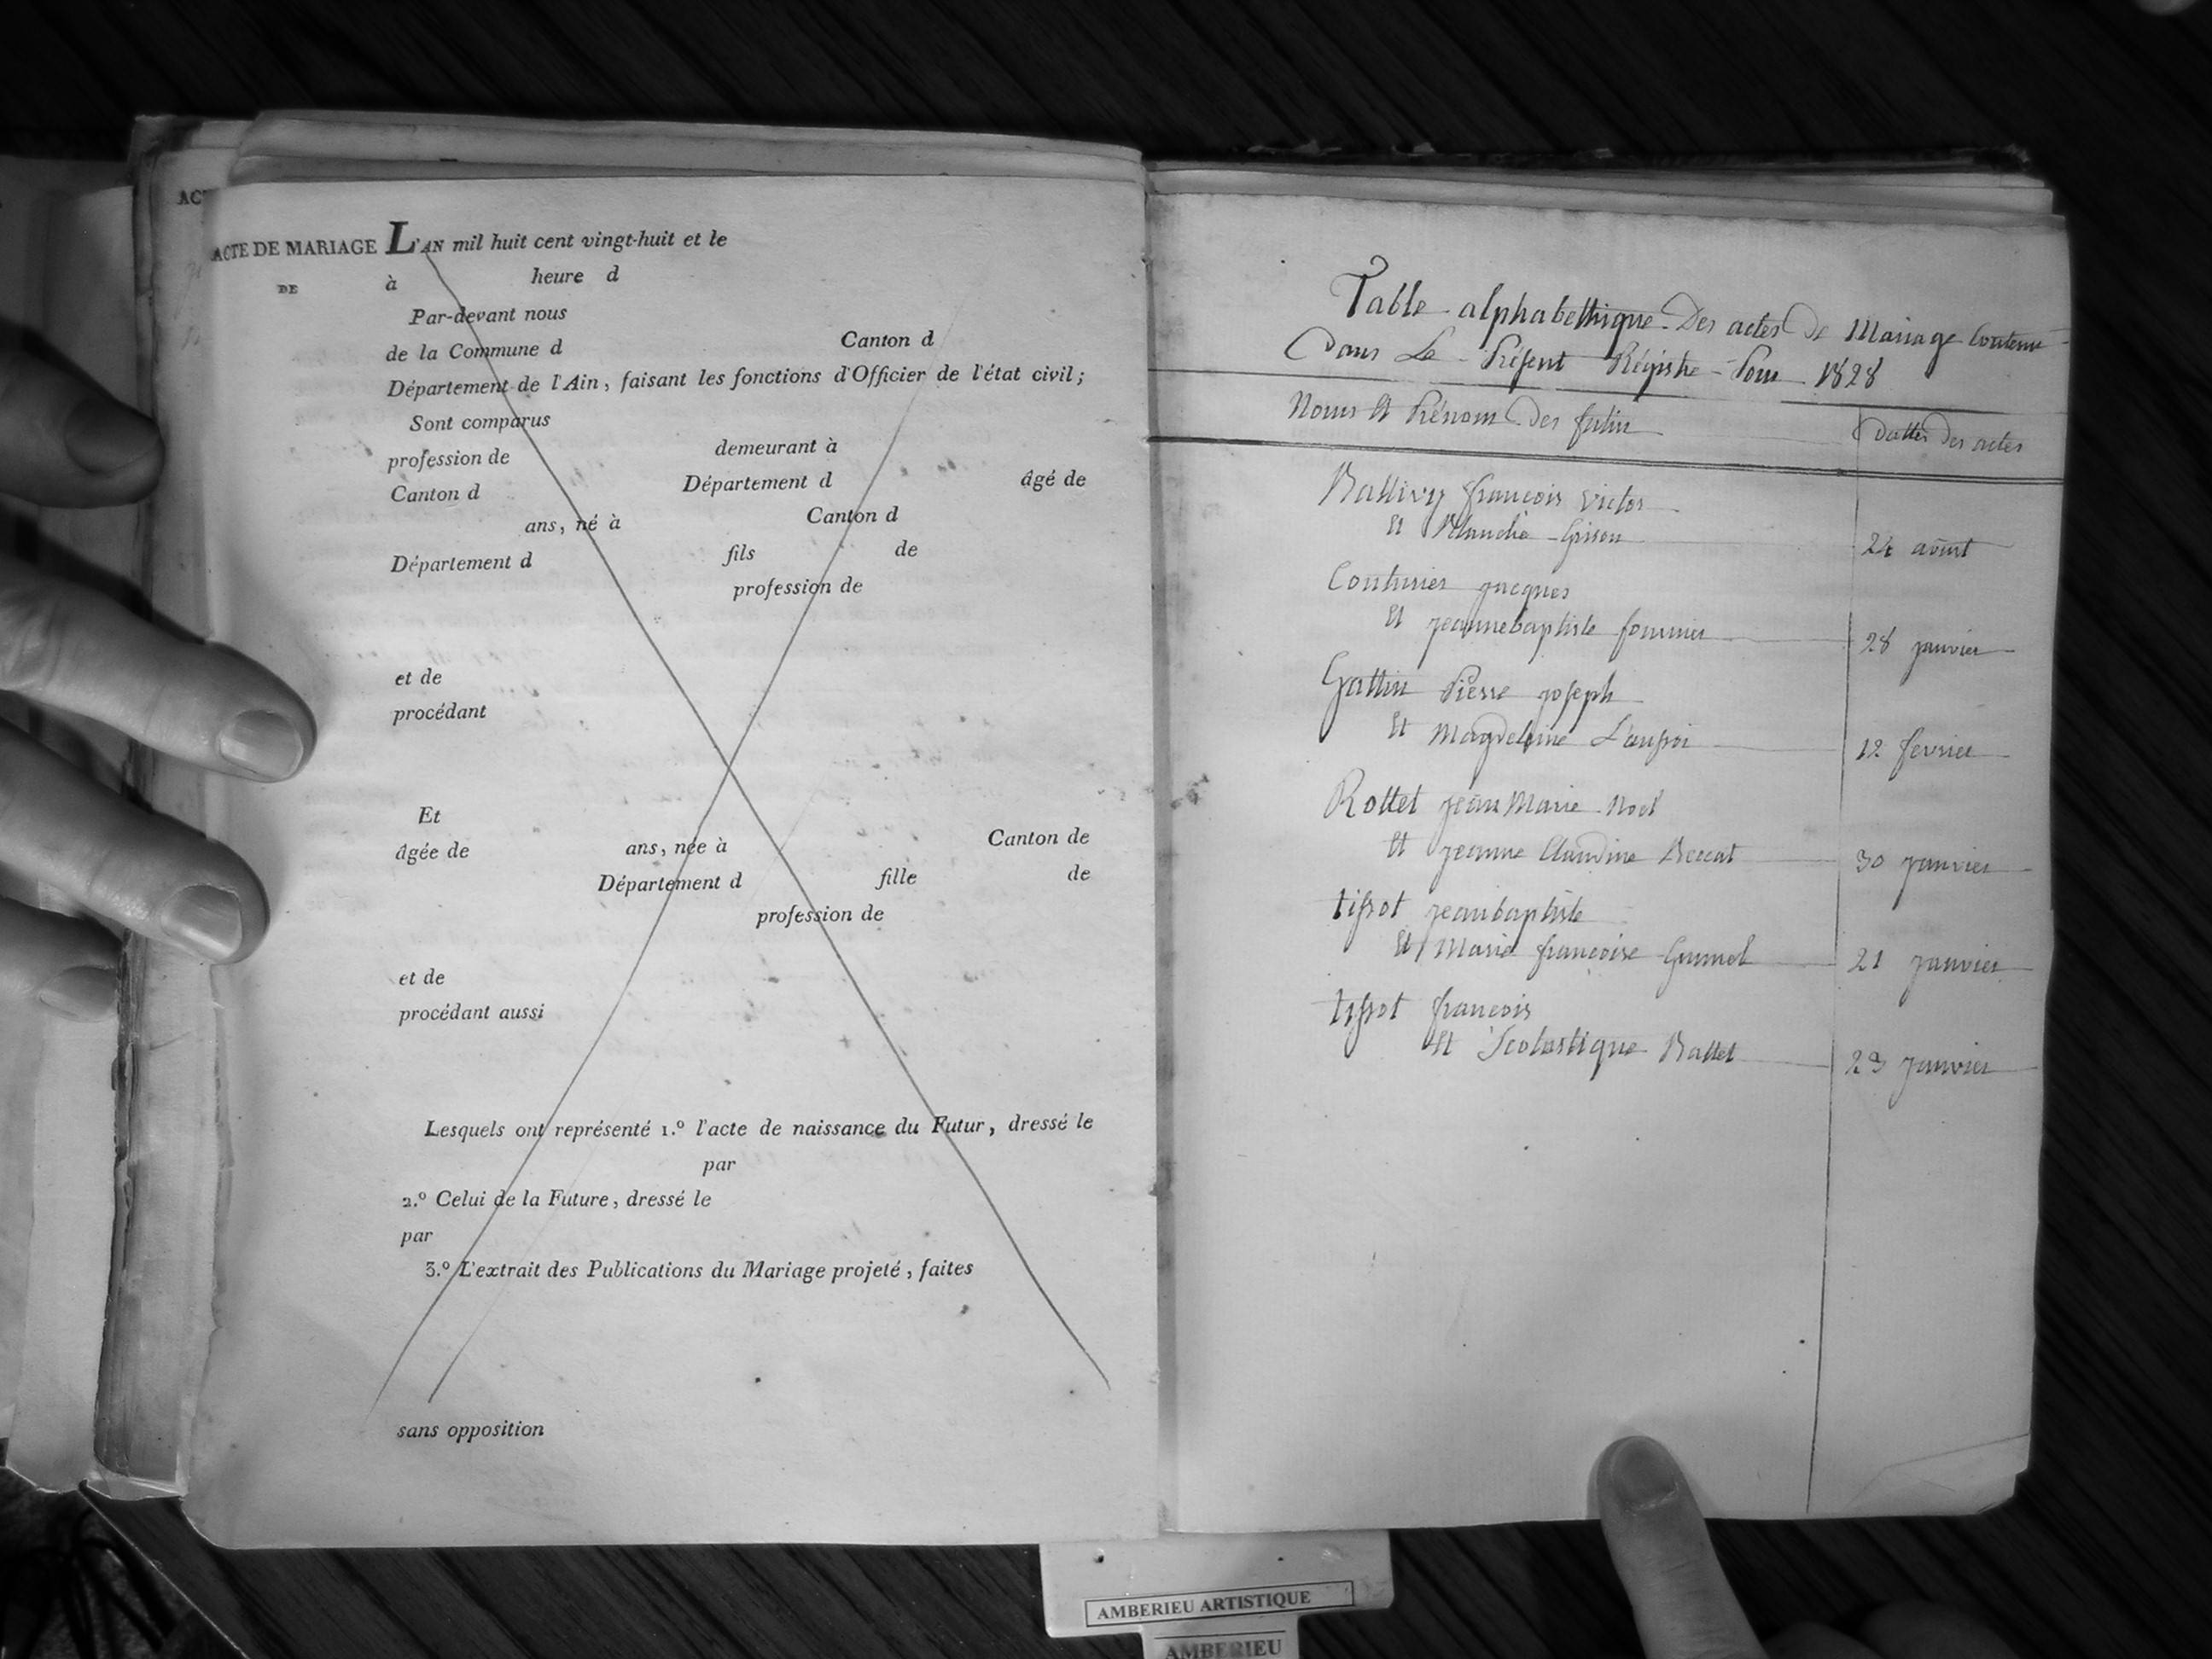 AC
ACTE DE MARIAGE L'AN mil huit cent vingt-huit et le
DE à heure d
Par-devant nous
de la Commune d Canton d
Département de l'Ain, faisant les fonctions d'Officier de l'état civil;
Sont comparus
profession de demeurant à
Canton d Département d âgé de
ans, né à Canton d
Département d fils de
profession de
et de
procédant
Et
âgée de ans, née à Canton de
Département d fille de
profession de
et de
procédant aussi
Lesquels ont représenté 1.º l'acte de naissance du Futur, dressé le
par
2.º Celui de la Future, dressé le
par
3.º L'extrait des Publications du Mariage projeté, faites
sans opposition
Table alphabethique Des actes De Mariage Contenu
Dans Le Présent Régistre Pour 1828
Noms Et Prénom Des futur
Dattes Des actes
Ballivy françois victor
Et Claudie Grison 24 août
Couturier jacques
Et jeannebaptiste fournier 28 janvier
Gattin Pierre joseph
Et Magdeleine 12 fevrier
Rottet jean Marie Noel
Et jeanne Claudine Beccat 30 janvier
tissot jeanbaptiste
Et Marie françoise 21 janvier
tissot francois
Et Scolastique Ballet 29 janvier
AMBERIEU ARTISTIQUE
AMBERIEU